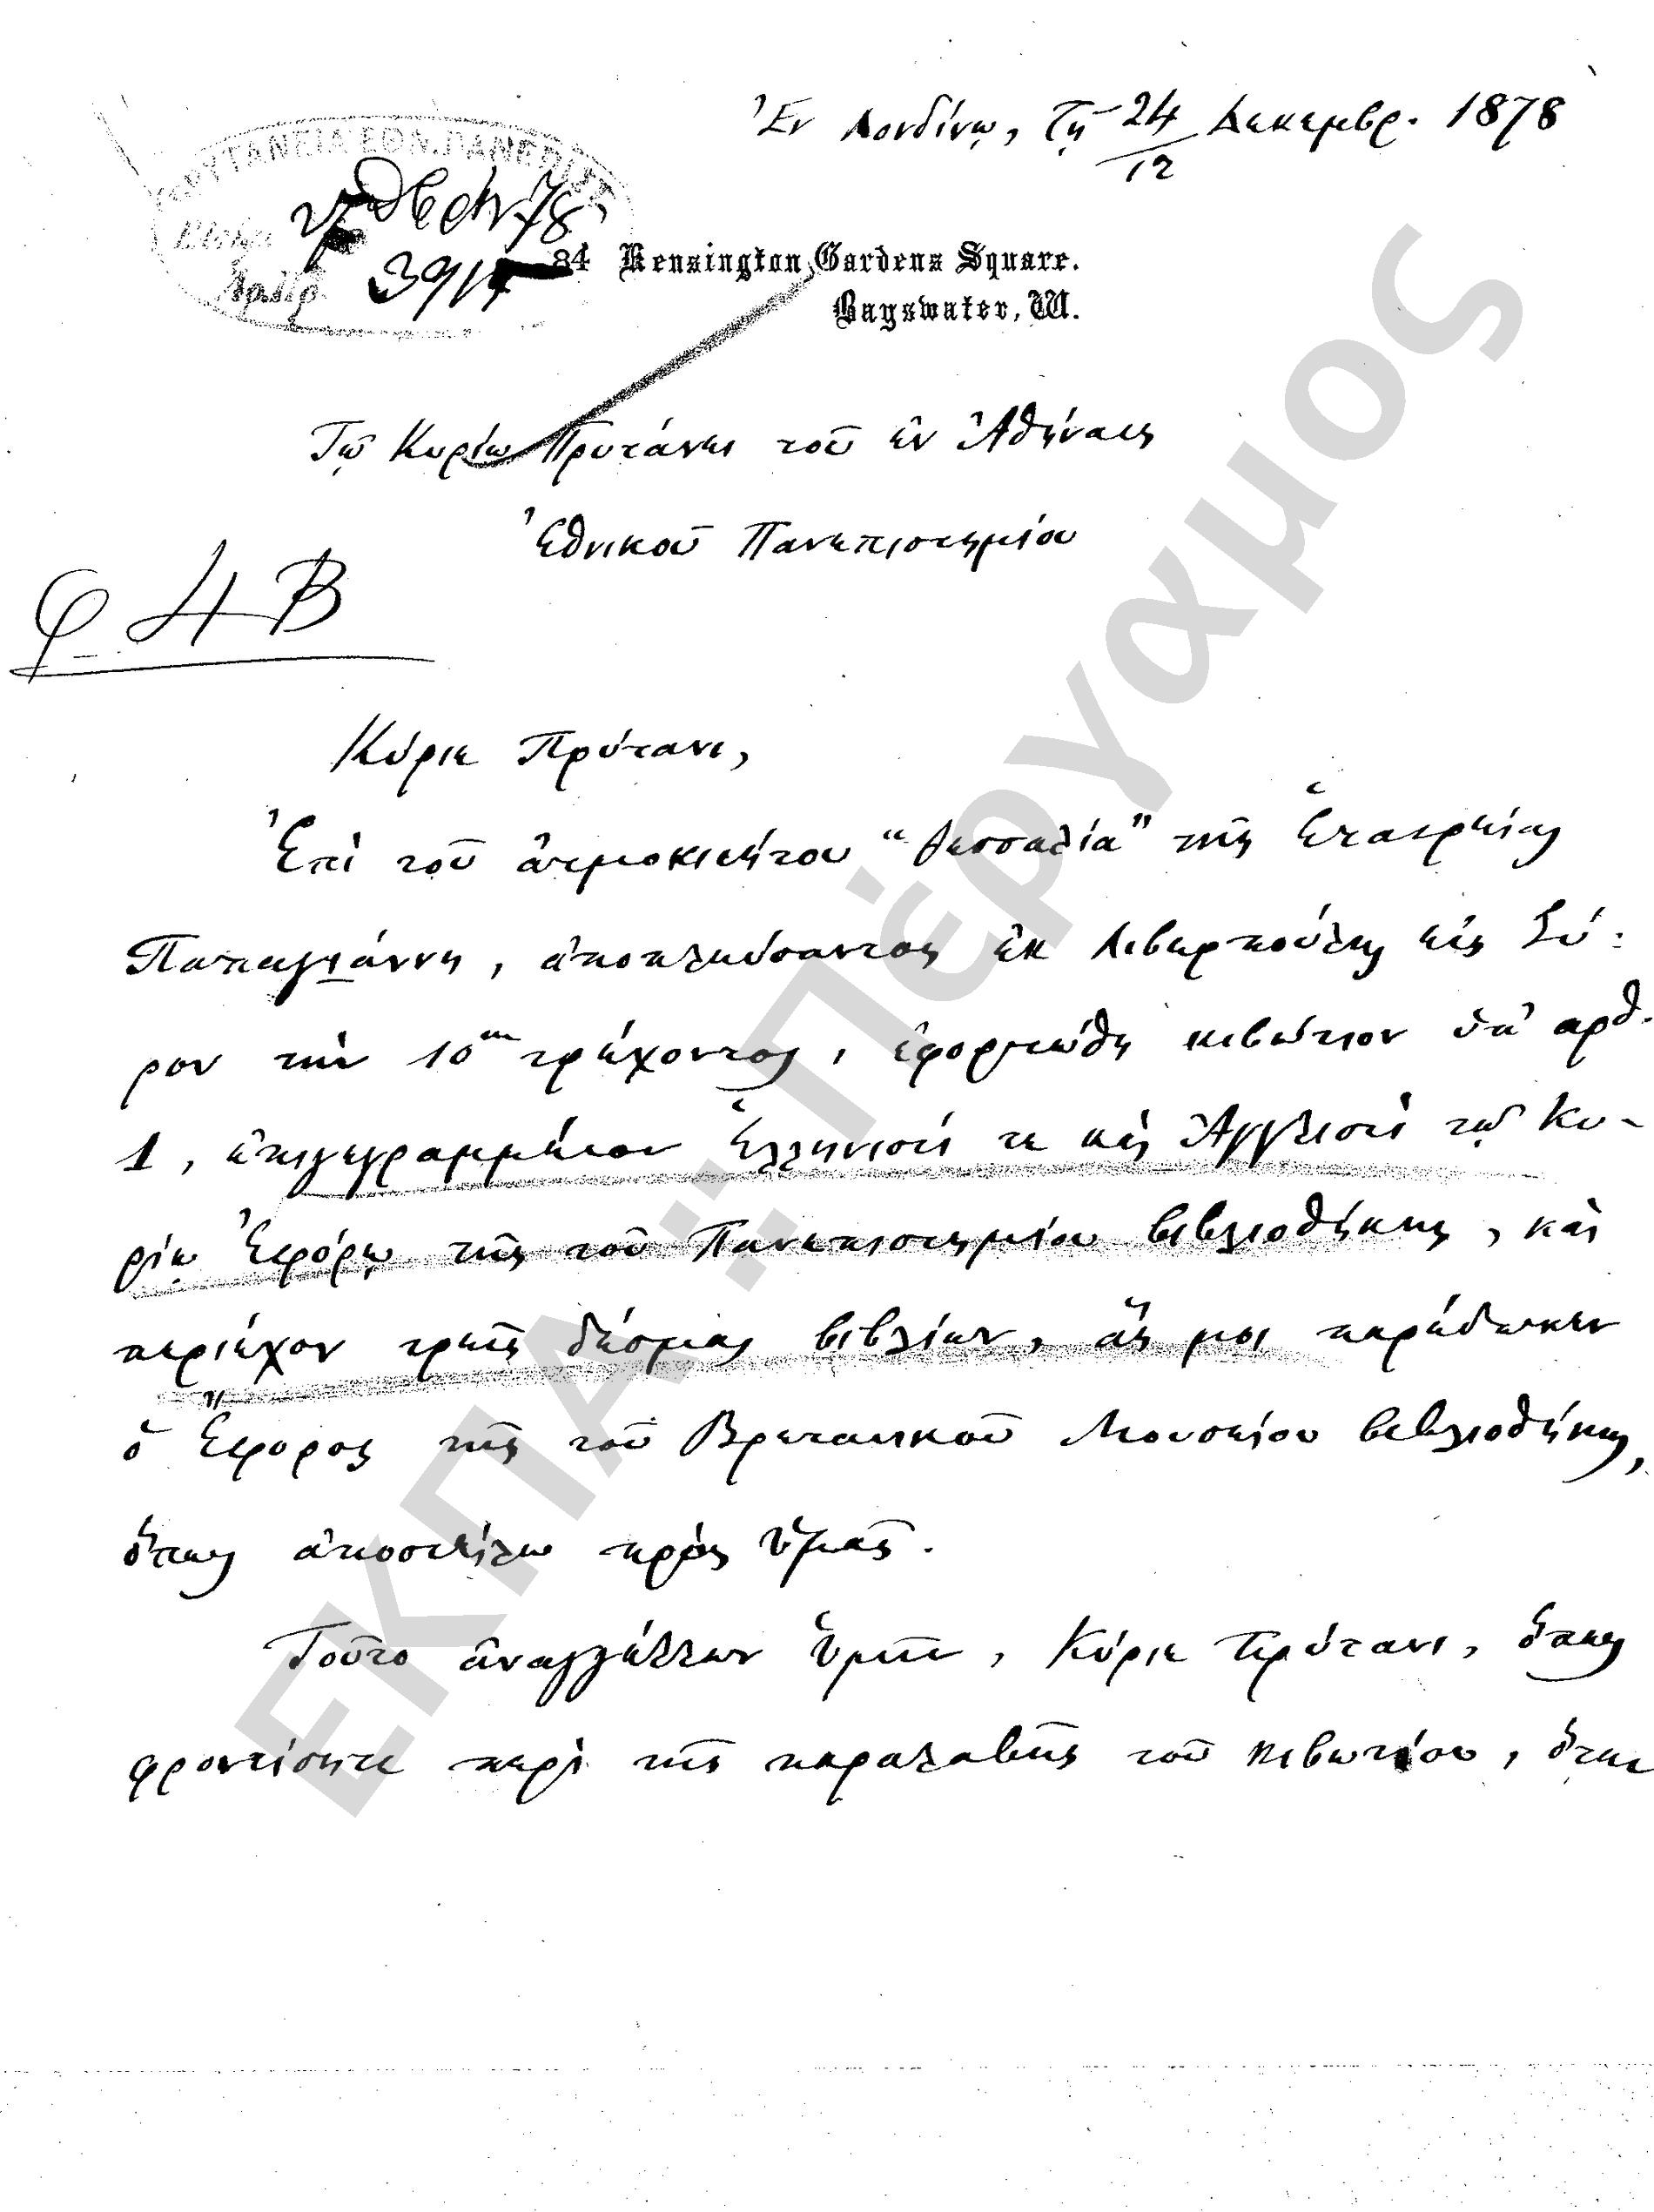 Ἐν Λονδίνῳ, τῇ 24/12 Δεκεμβρ. 1878
ΠΡΥΤΑΝΕΙΑ ΕΘΝ. ΠΑΝΕΠΙΣΤ.
Ἀριθ. 3917
84 Kensington Gardens Square.
Bayswater, W.
Τῷ Κυρίῳ Πρυτάνει τοῦ ἐν Ἀθήναις
Ἐθνικοῦ Πανεπιστημίου
φ. 4 Β
Κύριε Πρύτανι,
Ἐπὶ τοῦ ἀτμοκινήτου “Θεσσαλία” τῆς Ἑταιρείας
Παπαγιάννη, ἀποπλεύσαντος ἐκ Λιβερπούλης εἰς Σύ:
ρον τὴν 10ην τρέχοντος, ἐφορτώθη κιβώτιον ὑπ' αρθ.
1, ἐπιγεγραμμένον Ἑλληνιστί τε καὶ Ἀγγλιστὶ τῷ Κυ-
ρίῳ Ἐφόρῳ τῆς τοῦ Πανεπιστημίου βιβλιοθήκης, καὶ
περιέχον τρεῖς δέσμας βιβλίων, ἃς μοι παρέδωκεν
ὁ Ἔφορος τῆς τοῦ Βρετανικοῦ Μουσείου βιβλιοθήκης,
ὅπως ἀποστείλω πρὸς ὑμᾶς.
Τοῦτο ἀναγγέλλων ὑμῖν, Κύριε Πρύτανι, ὅπως
φροντίσητε περὶ τῆς παραλαβῆς τοῦ κιβωτίου, ὅπερ
ΕΚΠΑ :: Πέργαμος